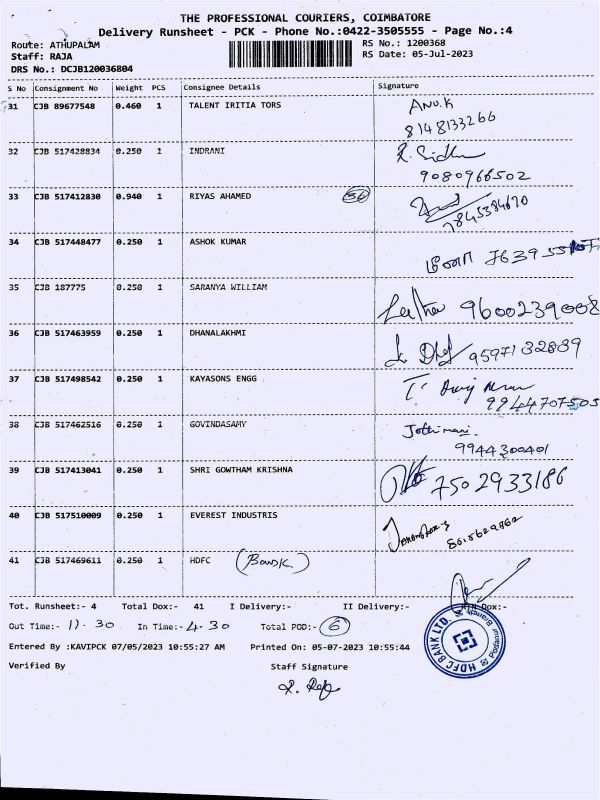 THE PROFESSIONAL COURIERS, COIMBATORE
Delivery Runsheet - PCK - Phone No.:0422-3505555 - Page No.:4
Route: ATHUPALAM
Staff: RAJA
DRS No.: DCJB120036804
RS No.: 1200368
RS Date: 05-Jul-2023
S No Consignment No Weight PCS Consignee Details Signature
31 CJB 89677548 0.460 1 TALENT IRITIA TORS Anu.K
8148133266
32 CJB 517428834 0.250 1 INDRANI
9080966502
33 CJB 517412830 0.940 1 RIYAS AHAMED 36
7845384670
34 CJB 517448477 0.250 1 ASHOK KUMAR
35 CJB 187775 0.250 1 SARANYA WILLIAM 9600239008
36 CJB 517463959 0.250 1 DHANALAKHMI 9597132839
37 CJB 517498542 0.250 1 KAYASONS ENGG
9944707505
38 CJB 517462516 0.250 1 GOVINDASAMY Jothimani.
9944300401
39 CJB 517413041 0.250 1 SHRI GOWTHAM KRISHNA 7502933186
40 CJB 517510009 0.250 1 EVEREST INDUSTRIS
41 CJB 517469611 0.250 1 HDFC (Bank)
Tot. Runsheet:- 4 Total Dox:- 41 I Delivery:- II Delivery:- Dox:-
Out Time:- 11.30 In Time:- 4.30 Total POD:- 6
HDFC BANK LTD.
Entered By :KAVIPCK 07/05/2023 10:55:27 AM Printed On: 05-07-2023 10:55:44
Verified By Staff Signature